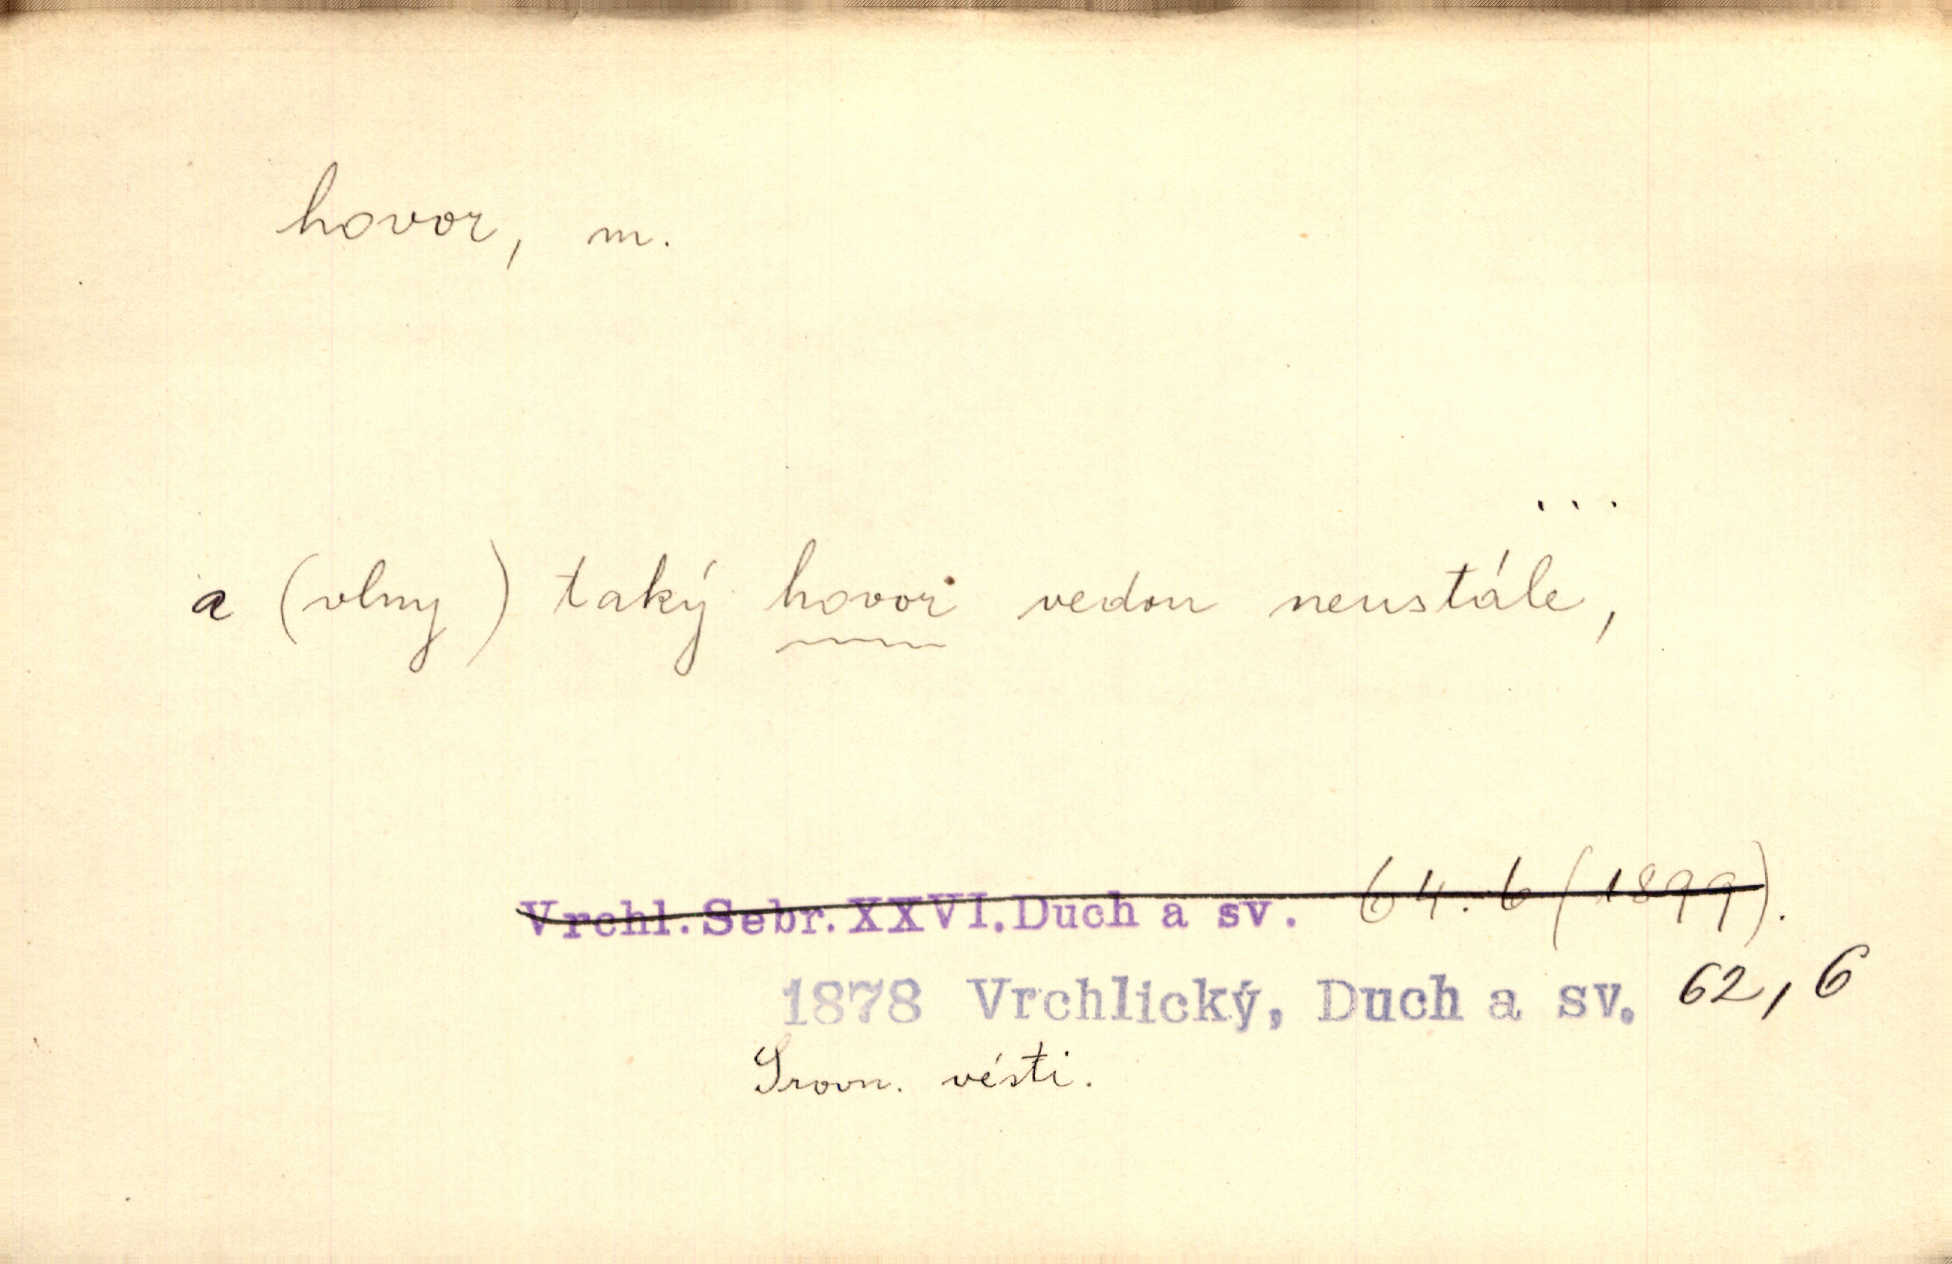 hovor, m.
...
a (vlny) taký hovor vedou neustále,
Vrchl. Sebr. XXVI. Duch a sv. 64. 6 (1899).
1878 Vrchlický, Duch a sv. 62, 6
Srovn. vésti.